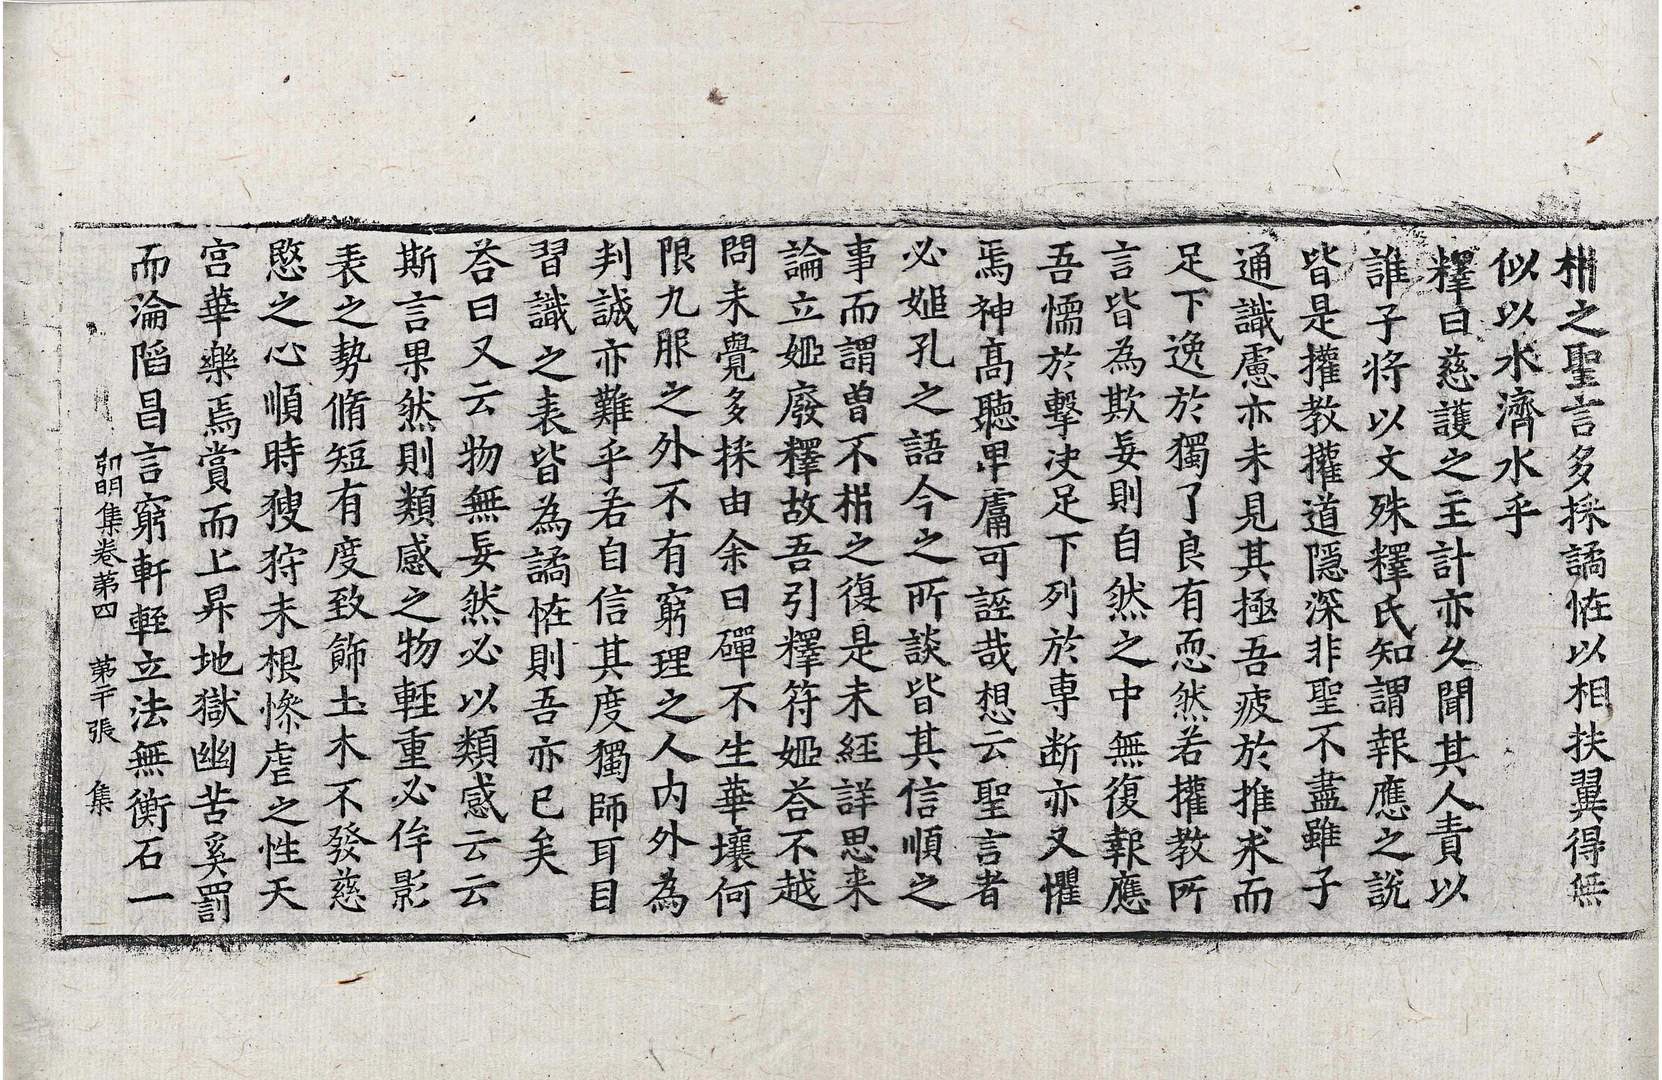 枏之聖言多採譎恠以相扶翼得無
似以水濟水乎
釋曰慈護之主計亦久聞其人責以
誰子將以文殊釋氏知謂報應之說
皆是攉教攉道隱深非聖不盡雖子
通識慮亦未見其極吾疲於推求而
足下逸於獨了良有恧然若攉教所
言皆為欺妄則自然之中無復報應
吾懦於擊决足下列於専断亦又懼
焉神髙聽卑庸可誣哉想云聖言者
必姬孔之語今之所談皆其信順之
事而謂曽不枏之復是未經詳思来
論立姬廢釋故吾引釋符姬荅不越
問未覺多採由余日磾不生華壤何
限九服之外不有窮理之人内外為
判誠亦難乎若自信其度獨師耳目
習識之表皆為譎恠則吾亦已矣
荅曰又云物無妄然必以類感云云
斯言果然則類感之物輕重必侔影
表之勢脩短有度致飾土木不發慈
愍之心順時獀狩未根慘虐之性天
宮華樂焉賞而上昇地獄幽苦奚罰
而淪䧟昌言窮軒輊立法無衡石一
弘明集卷第四　第二十張　集